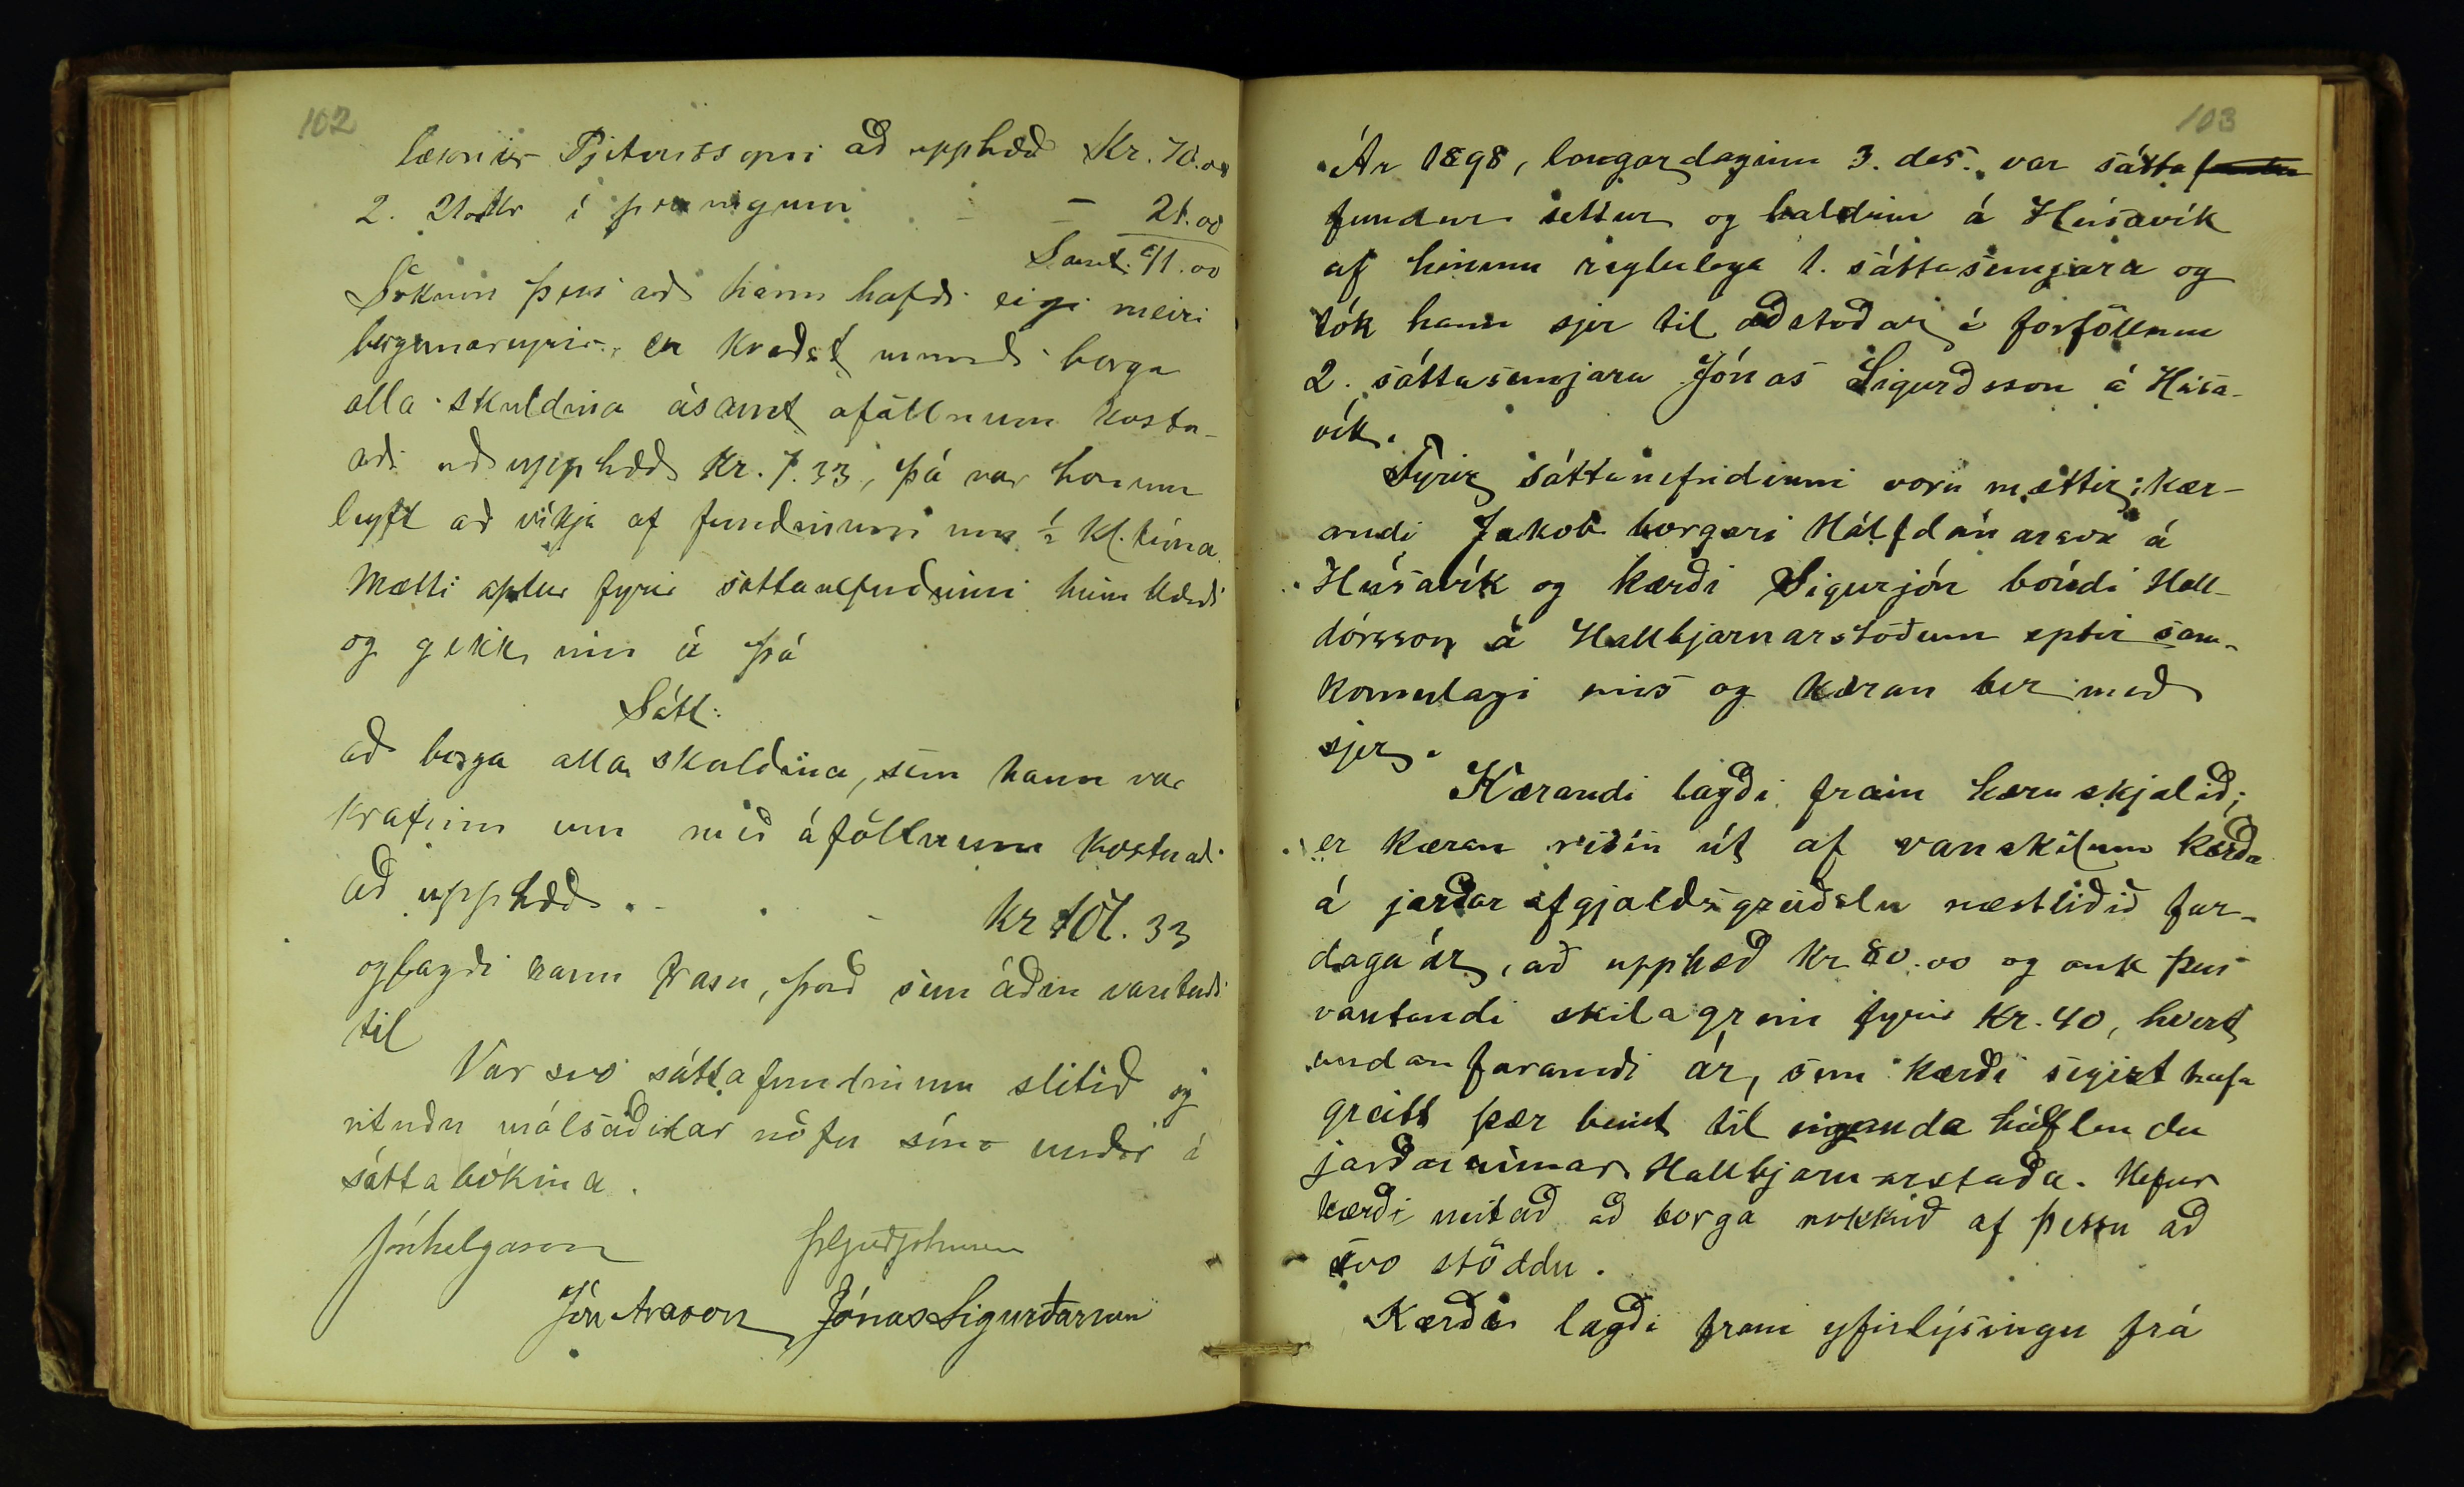 102
Pjeturssyni að upphæð Kr. 70.00
2. 21 kr í peningum - - 21.00
Samt. 91.00
Sökum þess að hann hafði eigi meiri
borgunareyrir, en kvaðst mundi borga
alla skuldina ásamt áföllnum kostn-
aði að upphæð Kr. 7.33, þá var honum
leyft að víkja af fundinum um ½ kl. tíma.
Mætti aptur fyrir sáttanefndinni hinn kærði
og gekk inn á þá
Sátt:
að borga alla skuldina, sem hann var
krafinn um með áföllnum kostnaði
að upphæð. - . - Kr 101.33
og lagði hann fram, það sem áður vantaði
til
Var svo sáttafundinum slitið og
rituðu málsaðilar nöfn sín undir í
sáttabókina.
Jón Helgason
Jón Arason Jónas Sigurðarson
103
Ár 1898, laugardaginn 3. des. var sátta
fundur settur og haldinn á Húsavík
af hinum reglulega 1. sáttasemjara og
tók hann sjer til aðstoðar í forföllum
2. sáttasemjara Jónas Sigurðsson á Húsa-
vík.
Fyrir sáttanefndinni voru mættir: kær-
andi Jakob borgari Hálfdánarson á
Húsavík og kærði Sigurjón bóndi Hall-
dórsson á Hallbjarnarstöðum eptir sam-
komulagi eins og kæran ber með
sjer.
Kærandi lagði fram kæruskjalið;
er kæran risin út af vanskilum kærða
á jarðarafgjaldsgreiðslu næstliðið far-
dagaár, að upphæð Kr 80.00 og auk þess
vantandi skilagrein fyrir Kr. 40, hvert
undanfarandi ár, sem kærði segist hafa
greitt þær beint til eiganda hálflendu
jarðarinnar Hallbjarnarstaða. Hefur
kærði neitað að borga nokkuð af þessu að
svo stöddu.
Kærði lagði fram yfirlýsingu frá